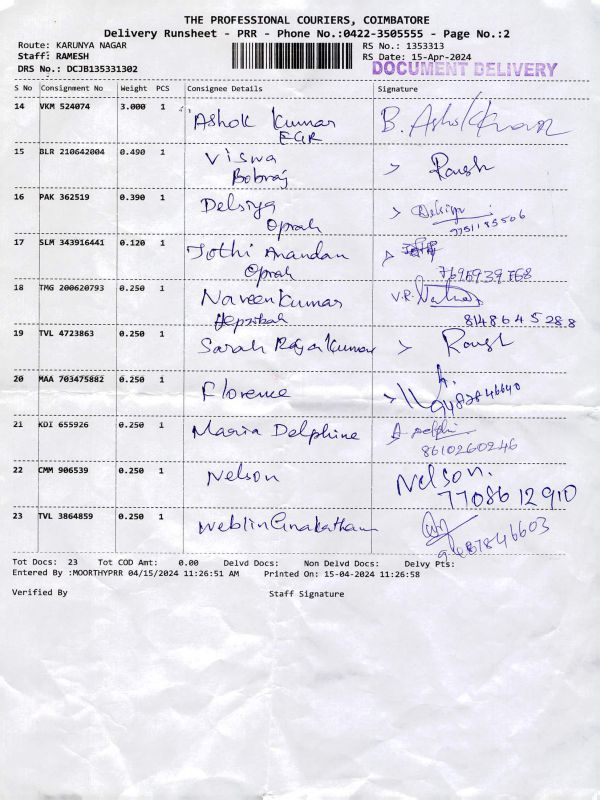 THE PROFESSIONAL COURIERS, COIMBATORE
Delivery Runsheet - PRR - Phone No.:0422-3505555 - Page No.:2
Route: KARUNYA NAGAR RS No.: 1353313
Staff: RAMESH RS Date: 15-Apr-2024
DRS No.: DCJB135331302 DOCUMENT DELIVERY
S No Consignment No Weight PCS Consignee Details Signature
14 VKM 524074 3.000 1 Ashok Kumar B. Ashok Kumar
EGR
15 BLR 210642004 0.490 1 Viswa
Bobraj
16 PAK 362519 0.390 1 Delsiya Delsiya
Oprah 7751185506
17 SLM 343916441 0.120 1 Jothi Anandan
Oprah
18 TMG 200620793 0.250 1 Naveen Kumar V.R.
Hepzibah 8148645288
19 TVL 4723863 0.250 1 Sarah Rajakumar
20 MAA 703475882 0.250 1 Florence
21 KDI 655926 0.250 1 Maria Delphine
8610260246
22 CMM 906539 0.250 1 Nelson Nelson.
7708612910
23 TVL 3864859 0.250 1
Tot Docs: 23 Tot COD Amt: 0.00 Delvd Docs: Non Delvd Docs: Delvy Pts:
Entered By :MOORTHYPRR 04/15/2024 11:26:51 AM Printed On: 15-04-2024 11:26:58
Verified By Staff Signature